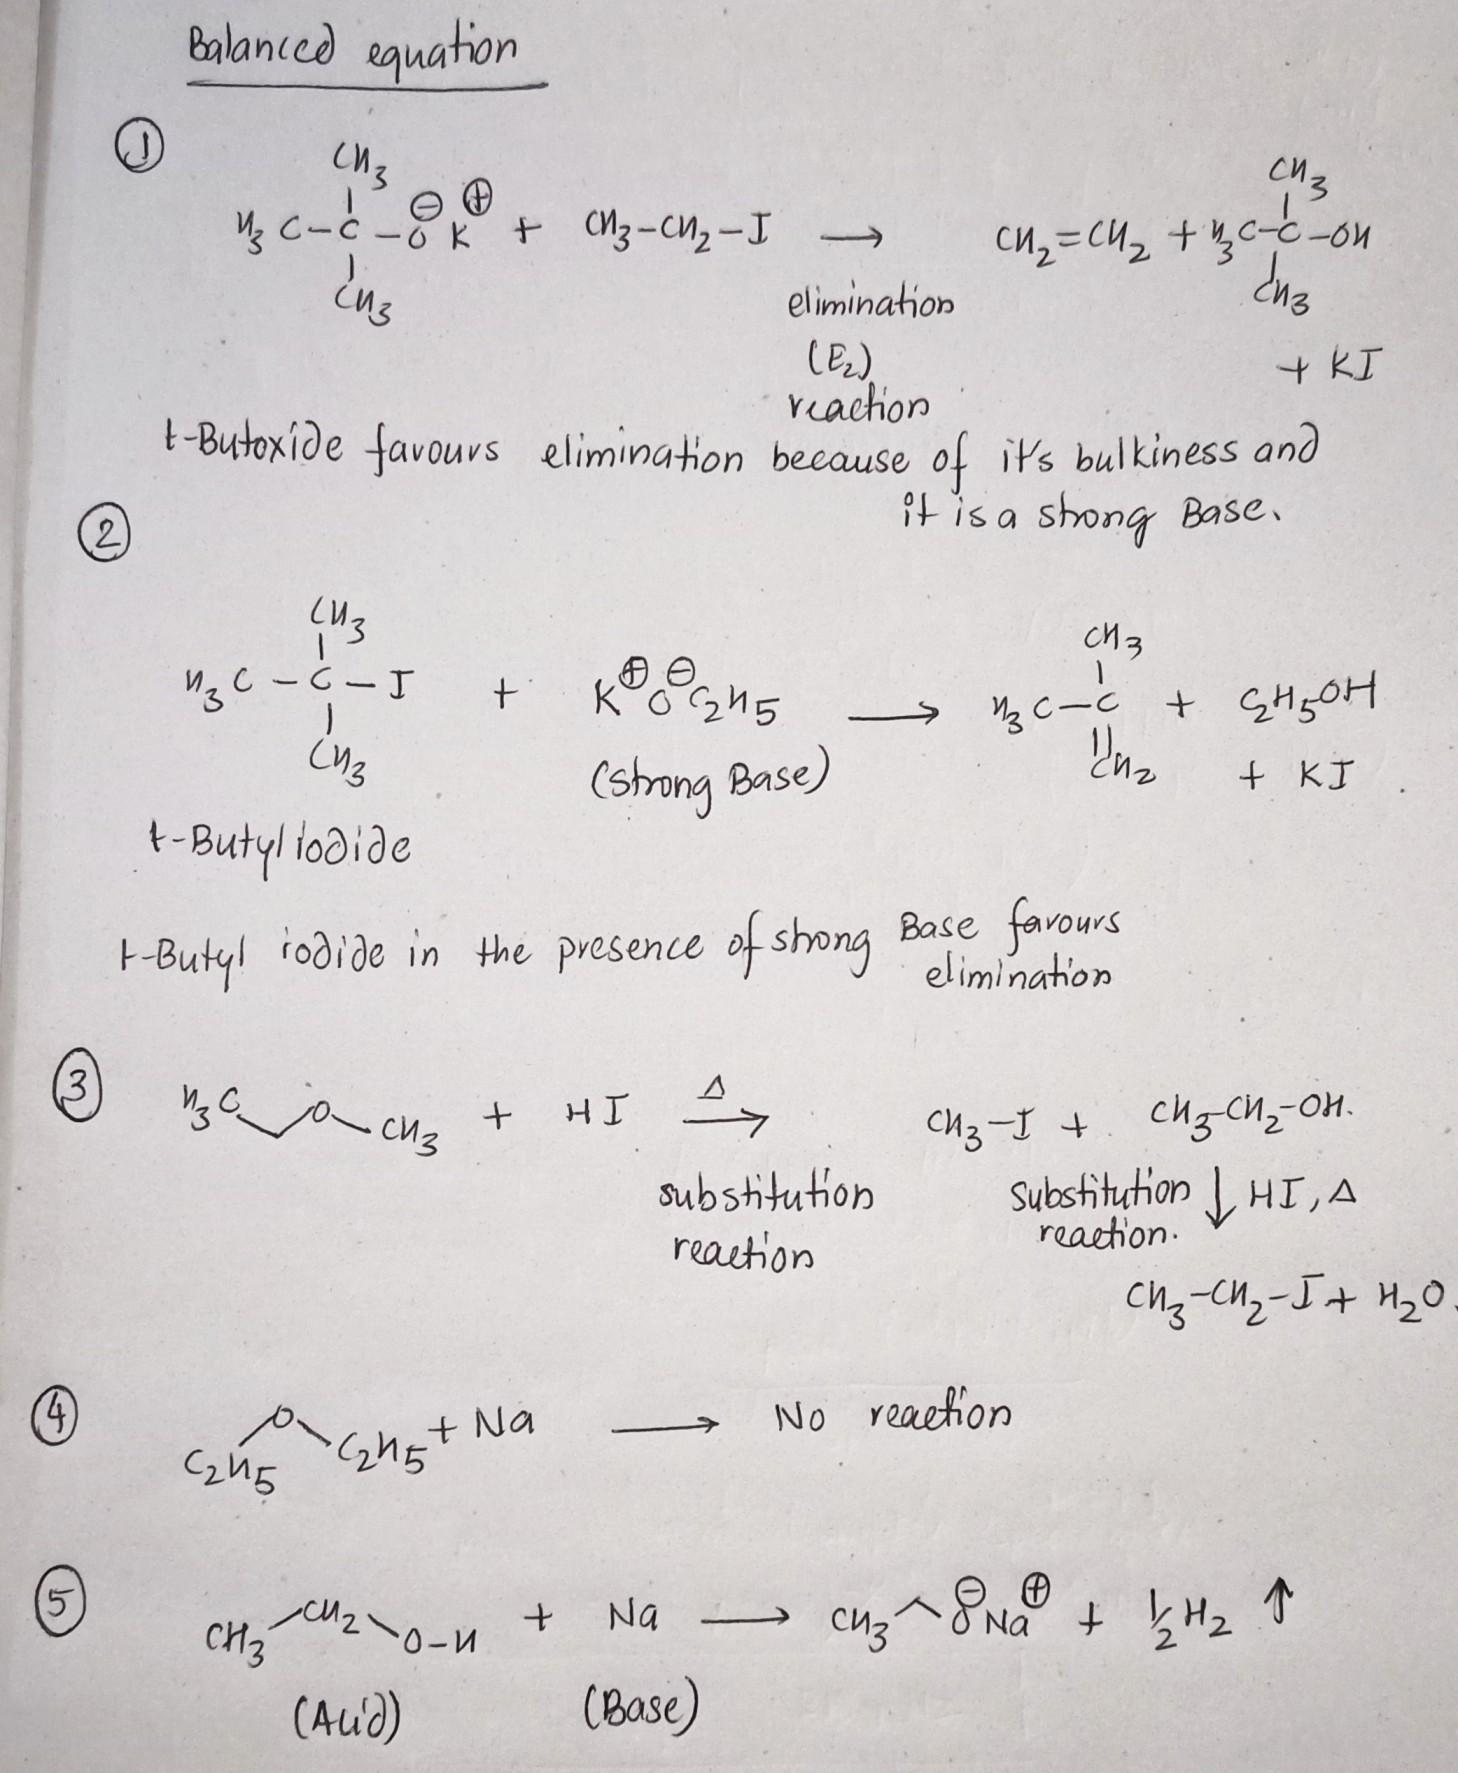 Balanced equation
①
CH3
H3C-C-O⊖ K⊕ + CH3-CH2-I → CH2=CH2 + H3C-C-OH
CH3
CH3
CH3
elimination
(E2)
reaction
+ KI
t-Butoxide favours elimination because of it's bulkiness and
it is a strong Base.
②
CH3
H3C-C-I + K⊕ O⊖C2H5 → H3C-C + C2H5OH
CH3
CH3
CH2
(strong Base)
+ KI.
t-Butyl iodide
t-Butyl iodide in the presence of strong Base favours
elimination
③ H3C O CH3 + HI Δ→ CH3-I + CH3-CH2-OH.
substitution
reaction
substitution ↓ HI, Δ
reaction.
CH3-CH2-I + H2O.
④ C2H5 O C2H5 + Na → No reaction
⑤ CH3 CH2 O-H + Na → CH3 O⊖ Na⊕ + 1/2 H2 ↑
(Acid) (Base)